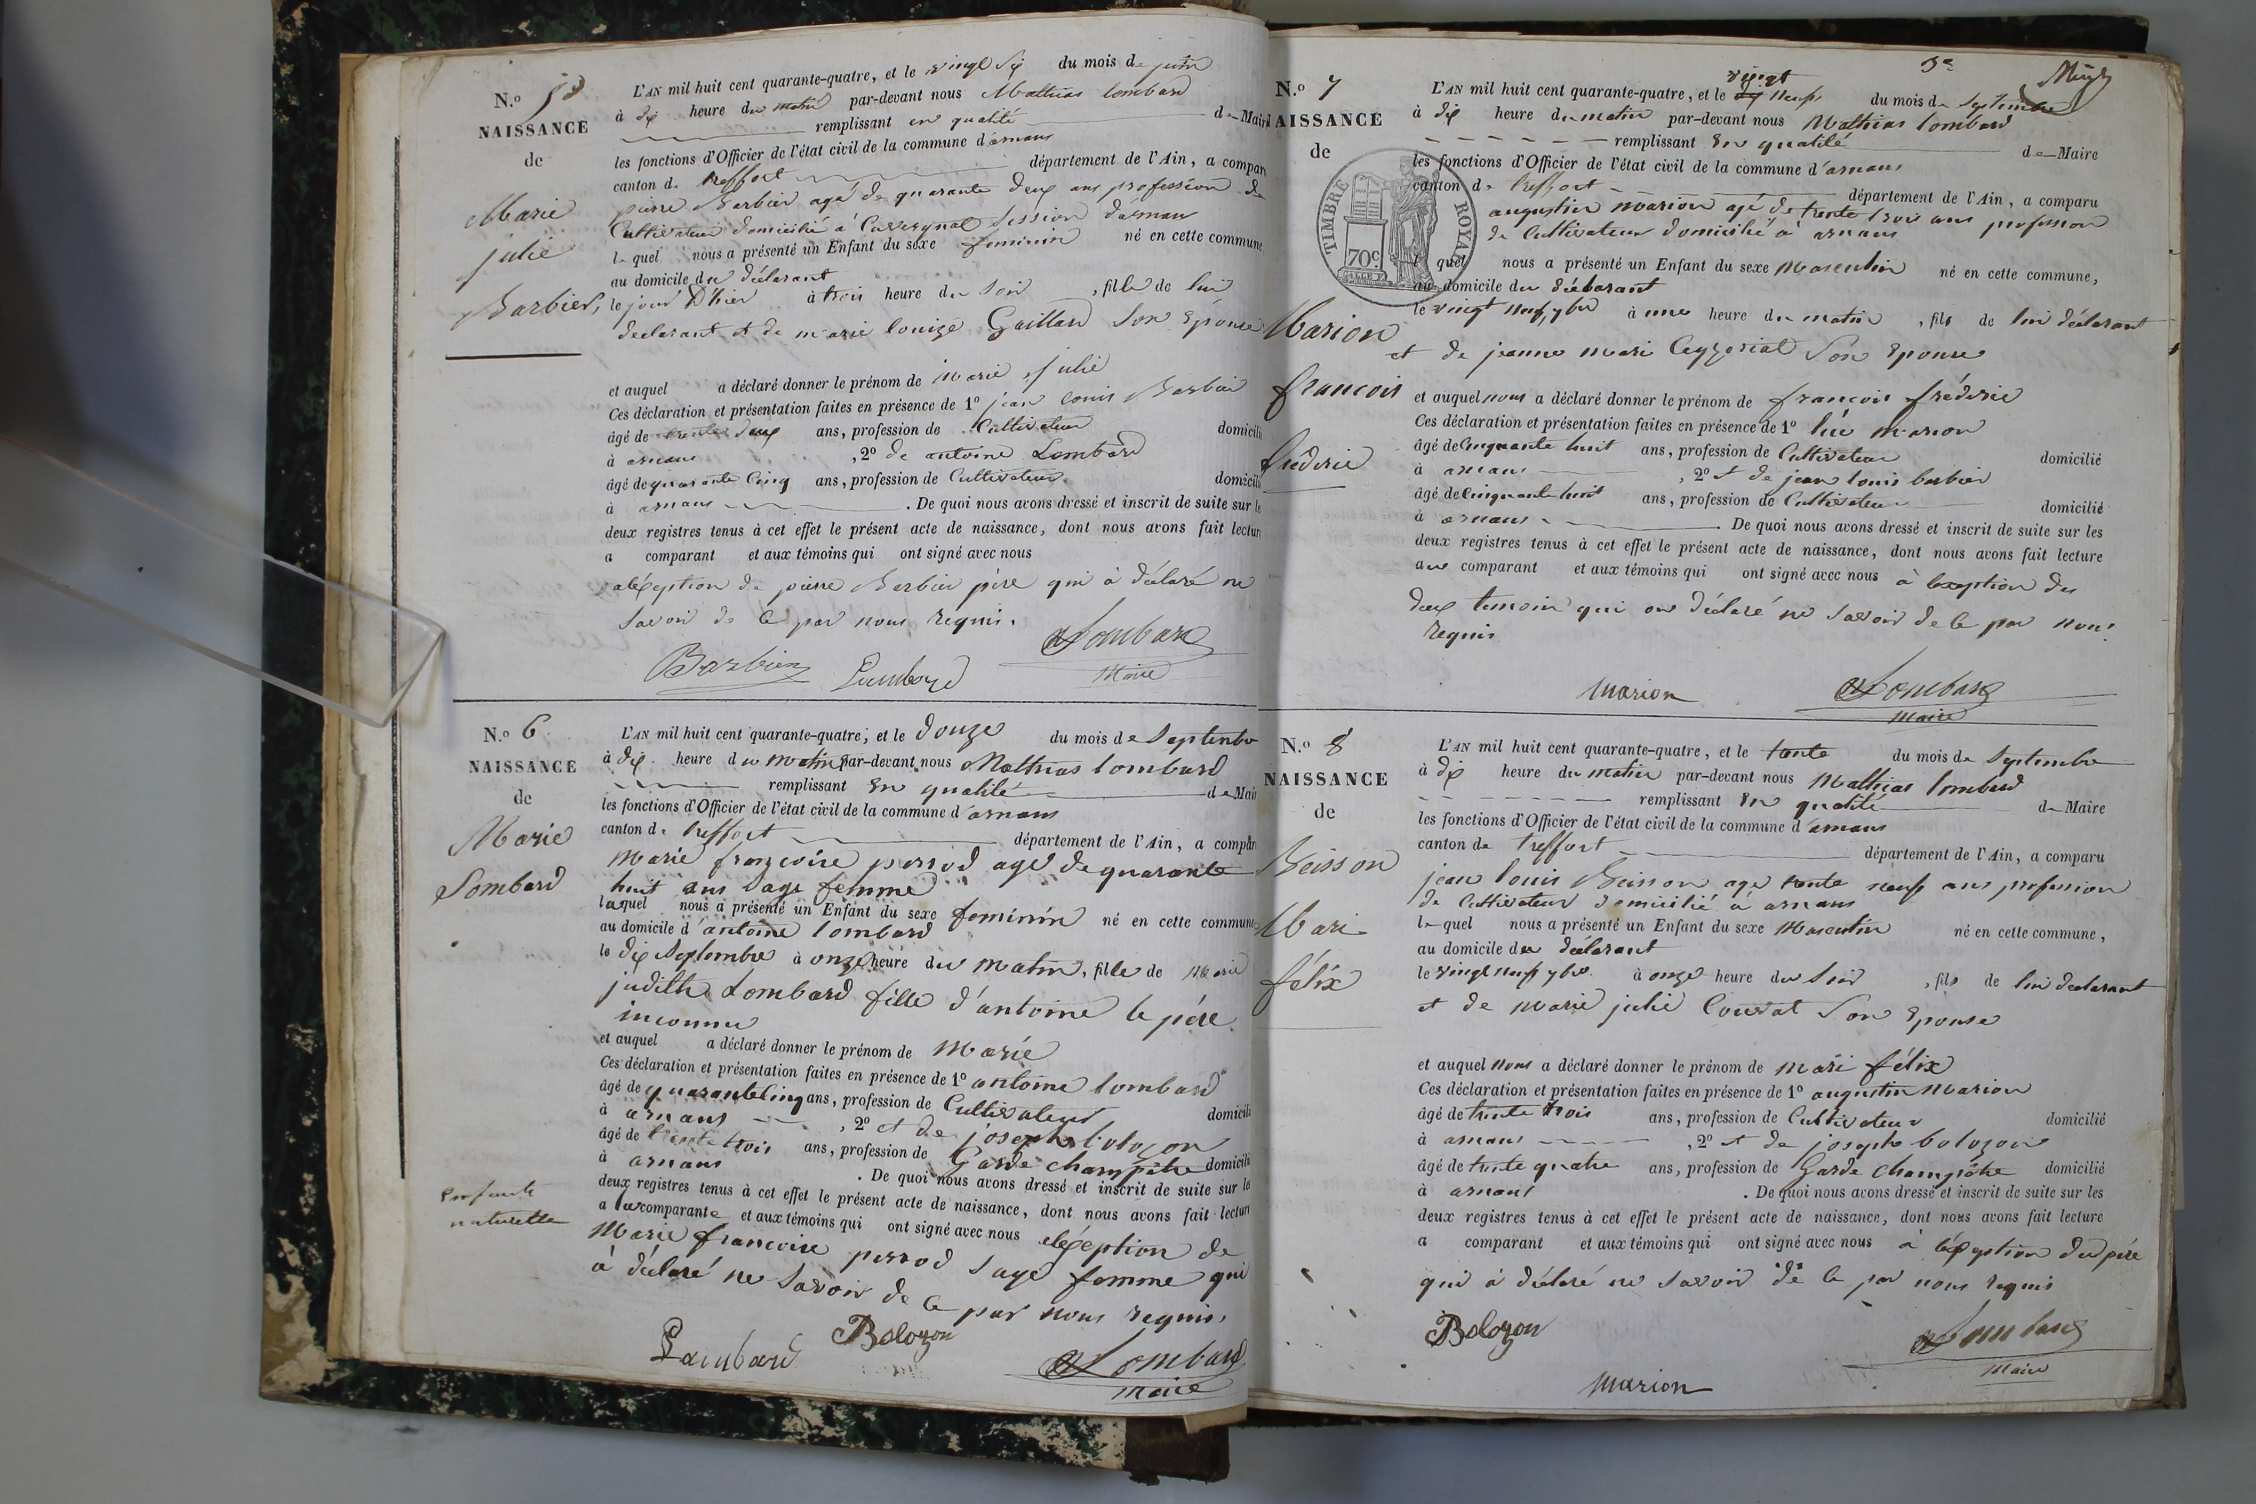 N.o 5
NAISSANCE
de
Marie
julie
Barbier,
L'AN mil huit cent quarante-quatre, et le vingt six du mois de juin
à dix heure du matin par-devant nous Mathias lombard
remplissant en qualité de Maire
les fonctions d'Officier de l'état civil de la commune d'arnans
canton de treffort département de l'Ain, a comparu
pierre Barbier agé de quarante deux ans profession de
Cultivateur domicilié à Section d'arnans
le quel nous a présenté un Enfant du sexe feminin né en cette commune
au domicile du déclarant
le jour D'hier à trois heure du Soir, fille de lui
declarant et de marie louize Gaillard Son Epouse
et auquel a déclaré donner le prénom de marie julie
Ces déclaration et présentation faites en présence de 1o jean louis Barbier
âgé de trente deux ans, profession de Cultivateur domicilié
à arnans, 2o de antoine Lombard
âgé de quarante Cinq ans, profession de Cultivateur domicilié
à arnans. De quoi nous avons dressé et inscrit de suite sur les
deux registres tenus à cet effet le présent acte de naissance, dont nous avons fait lecture
a comparant et aux témoins qui ont signé avec nous
a léxception de pierre Barbier père qui à déclaré ne
Savoir de Ce par nous requis.
Barbier Lambard Lombard
Maire
N.o 6
NAISSANCE
de
Marie
Lombard
Enfante
naturelle
L'AN mil huit cent quarante-quatre, et le douze du mois de Septembre
à dix heure du matin par-devant nous Mathias lombard
remplissant En qualité de Maire
les fonctions d'Officier de l'état civil de la commune d'arnans
canton de treffort département de l'Ain, a comparu
Marie françoise perrod agé de quarante
huit ans Sage femme
laquel nous a présenté un Enfant du sexe feminin né en cette commune
au domicile d'antoine lombard
le dix Septembre à onze heure du matin, fille de Marie
judith Lombard fille d'antoine le père
inconnu
et auquel a déclaré donner le prénom de Marie
Ces déclaration et présentation faites en présence de 1o antoine lombard
âgé de quarante Cinq ans, profession de Cultivateur domicilié
à arnans, 2o et de joseph bolozon
âgé de trente trois ans, profession de Garde champêtre domicilié
à arnans. De quoi nous avons dressé et inscrit de suite sur les
deux registres tenus à cet effet le présent acte de naissance, dont nous avons fait lecture
a la comparante et aux témoins qui ont signé avec nous eléxeption de
Marie francoise perrod Sage femme qui
à déclaré ne Savoir de Ce par nous requis,
Lambard Bolozon Lombard
maire
3e
N.o 7
NAISSANCE
de
Marion
francois
fréderic
TIMBRE ROYAL
70c
L'AN mil huit cent quarante-quatre, et le vingt neuf du mois de Septembre
à dix heure du matin par-devant nous Mathias lombard
remplissant En qualité de Maire
les fonctions d'Officier de l'état civil de la commune d'arnans
canton de treffort département de l'Ain, a comparu
augustin marion agé de trente trois ans profession
de Cultivateur domicilié à arnans
le quel nous a présenté un Enfant du sexe Masculin né en cette commune,
au domicile du déclarant
le vingt neuf, 7bre à une heure du matin, fils de lui déclarant
et de jeanne mari Ceyzeriat Son Epouse
et auquel nous a déclaré donner le prénom de françois fréderic
Ces déclaration et présentation faites en présence de 1o marion
âgé de Cinquante huit ans, profession de Cultivateur domicilié
à arnans, 2o et de jean louis barbier
âgé de Cinquante huit ans, profession de Cultivateur domicilié
à arnans. De quoi nous avons dressé et inscrit de suite sur les
deux registres tenus à cet effet le présent acte de naissance, dont nous avons fait lecture
au comparant et aux témoins qui ont signé avec nous à lexception des
deux temoin qui on déclaré ne Savoir de Ce par nous
requis
Marion Lombard
Maire
N.o 8
NAISSANCE
de
Buisson
Mari
félix
L'AN mil huit cent quarante-quatre, et le trante du mois de Septembre
à dix heure du matin par-devant nous Mathias lombard
remplissant En qualité de Maire
les fonctions d'Officier de l'état civil de la commune d'arnans
canton de treffort département de l'Ain, a comparu
jean louis Buisson age trante neuf ans profession
de Cultivateur domicilié à arnans
le quel nous a présenté un Enfant du sexe Masculin né en cette commune,
au domicile du déclarant
le vingt neuf 7bre à onze heure du Soir, fils de lui declarant
et de Marie julie Son Epouse
et auquel nous a déclaré donner le prénom de Mari félix
Ces déclaration et présentation faites en présence de 1o augustin Marion
âgé de trente trois ans, profession de Cultivateur domicilié
à arnans, 2o et de joseph bolozon
âgé de trente quatre ans, profession de Garde champêtre domicilié
à arnans. De quoi nous avons dressé et inscrit de suite sur les
deux registres tenus à cet effet le présent acte de naissance, dont nous avons fait lecture
a comparant et aux témoins qui ont signé avec nous à léxception du pére
qui à déclaré ne Savoir de Ce par nous requis
Bolozon Lombard
Maire
Marion